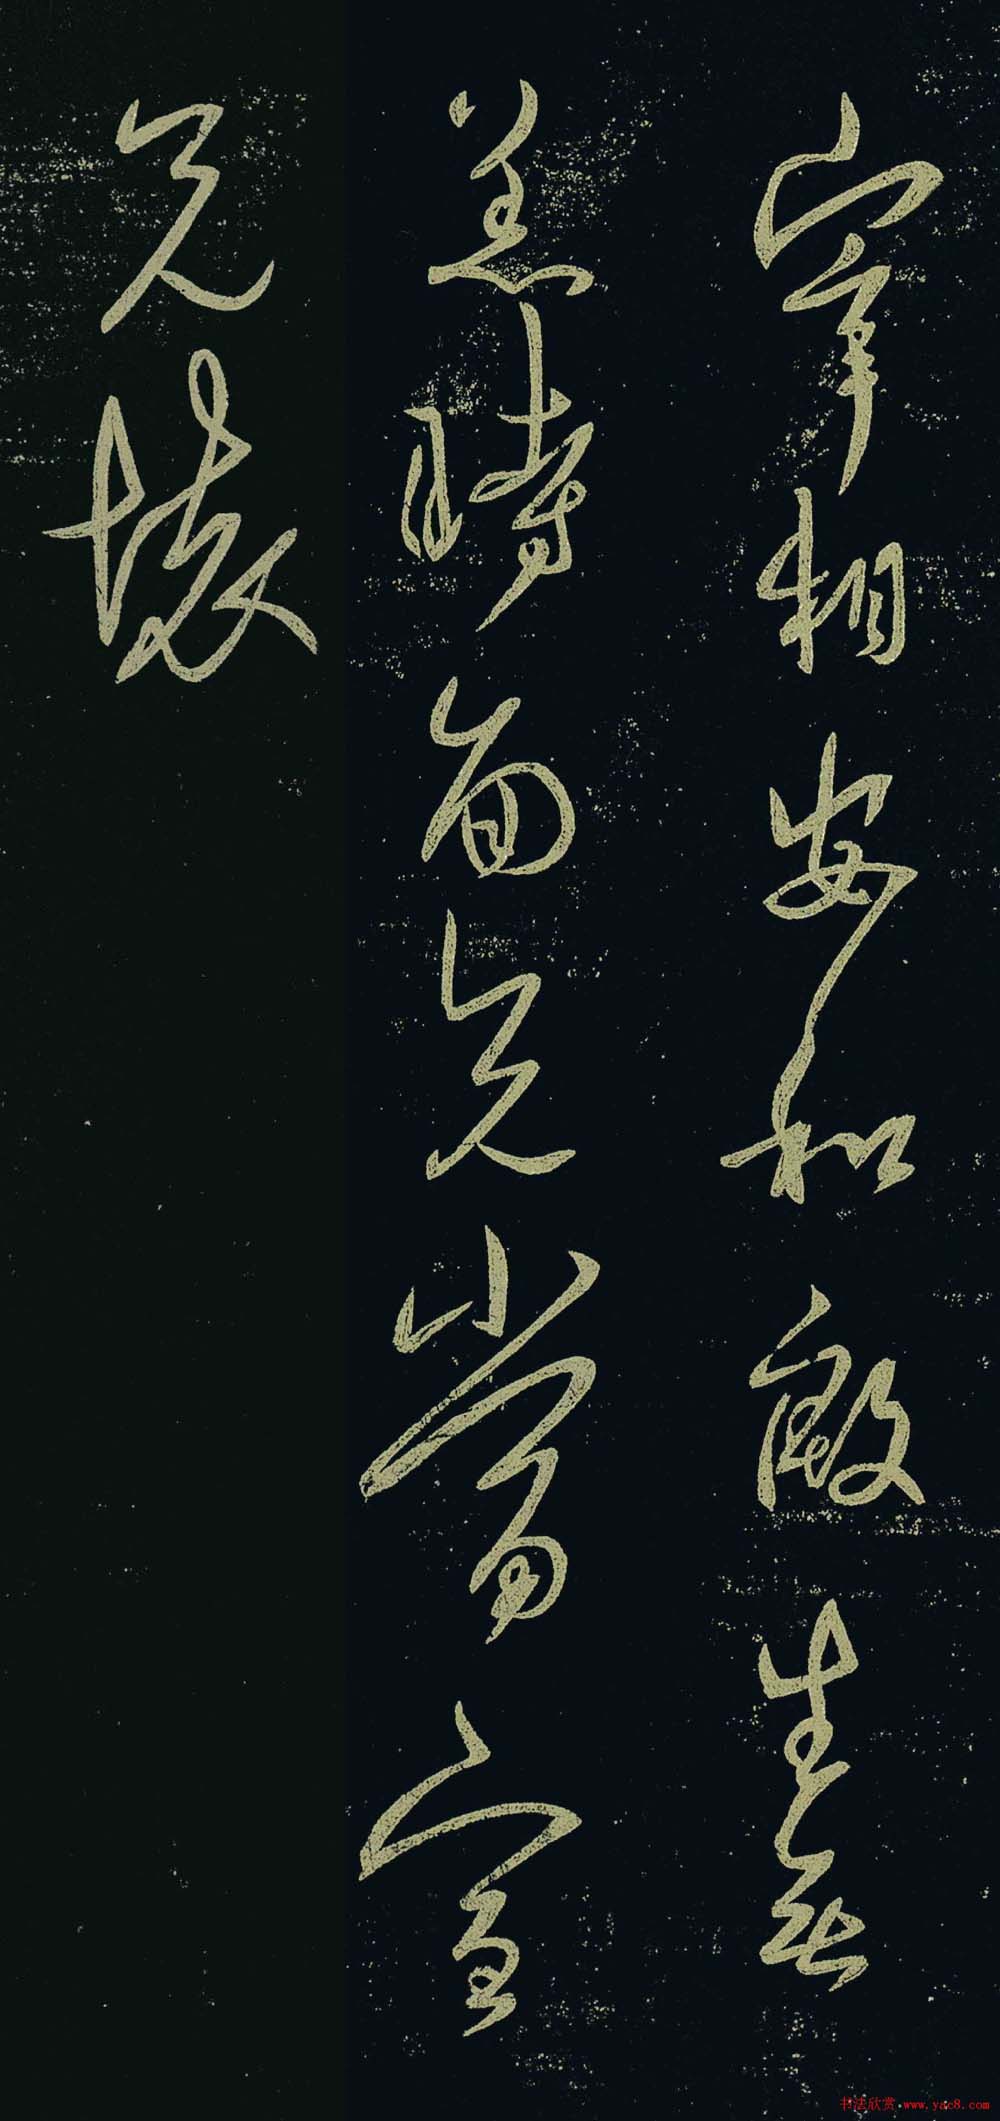 宰相安和殷生無
恙時面兄當宣
兄懷
书法欣赏 www.yac8.com